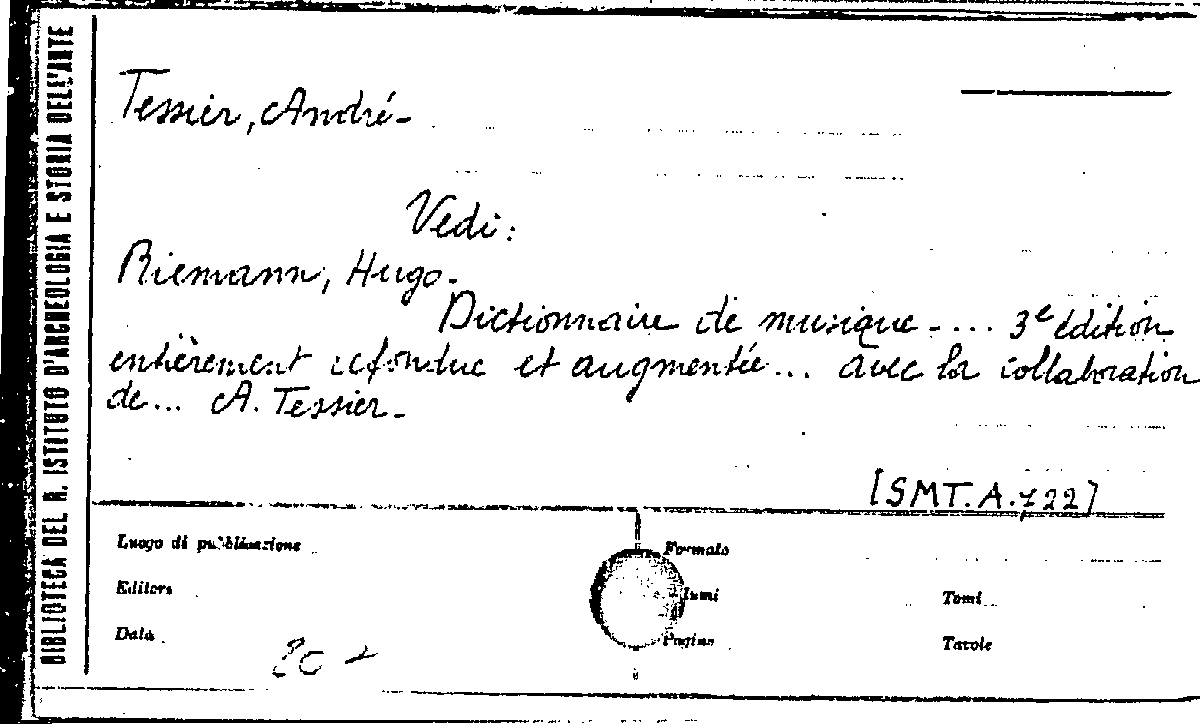 BIBLIOTECA DEL R. ISTITUTO D'ARCHEOLOGIA E STORIA DELL'ARTE
Tessier, André-
Vedi:
Riemann, Hugo-
Dictionnaire de musique-.... 3e édition
entièrement refondue et augmentée... avec la collaboration
de... A. Tessier-
[SMT.A.722]
Luogo di pubblicazione
Formato
Editore
Tomi
Data
Pagine
Tavole